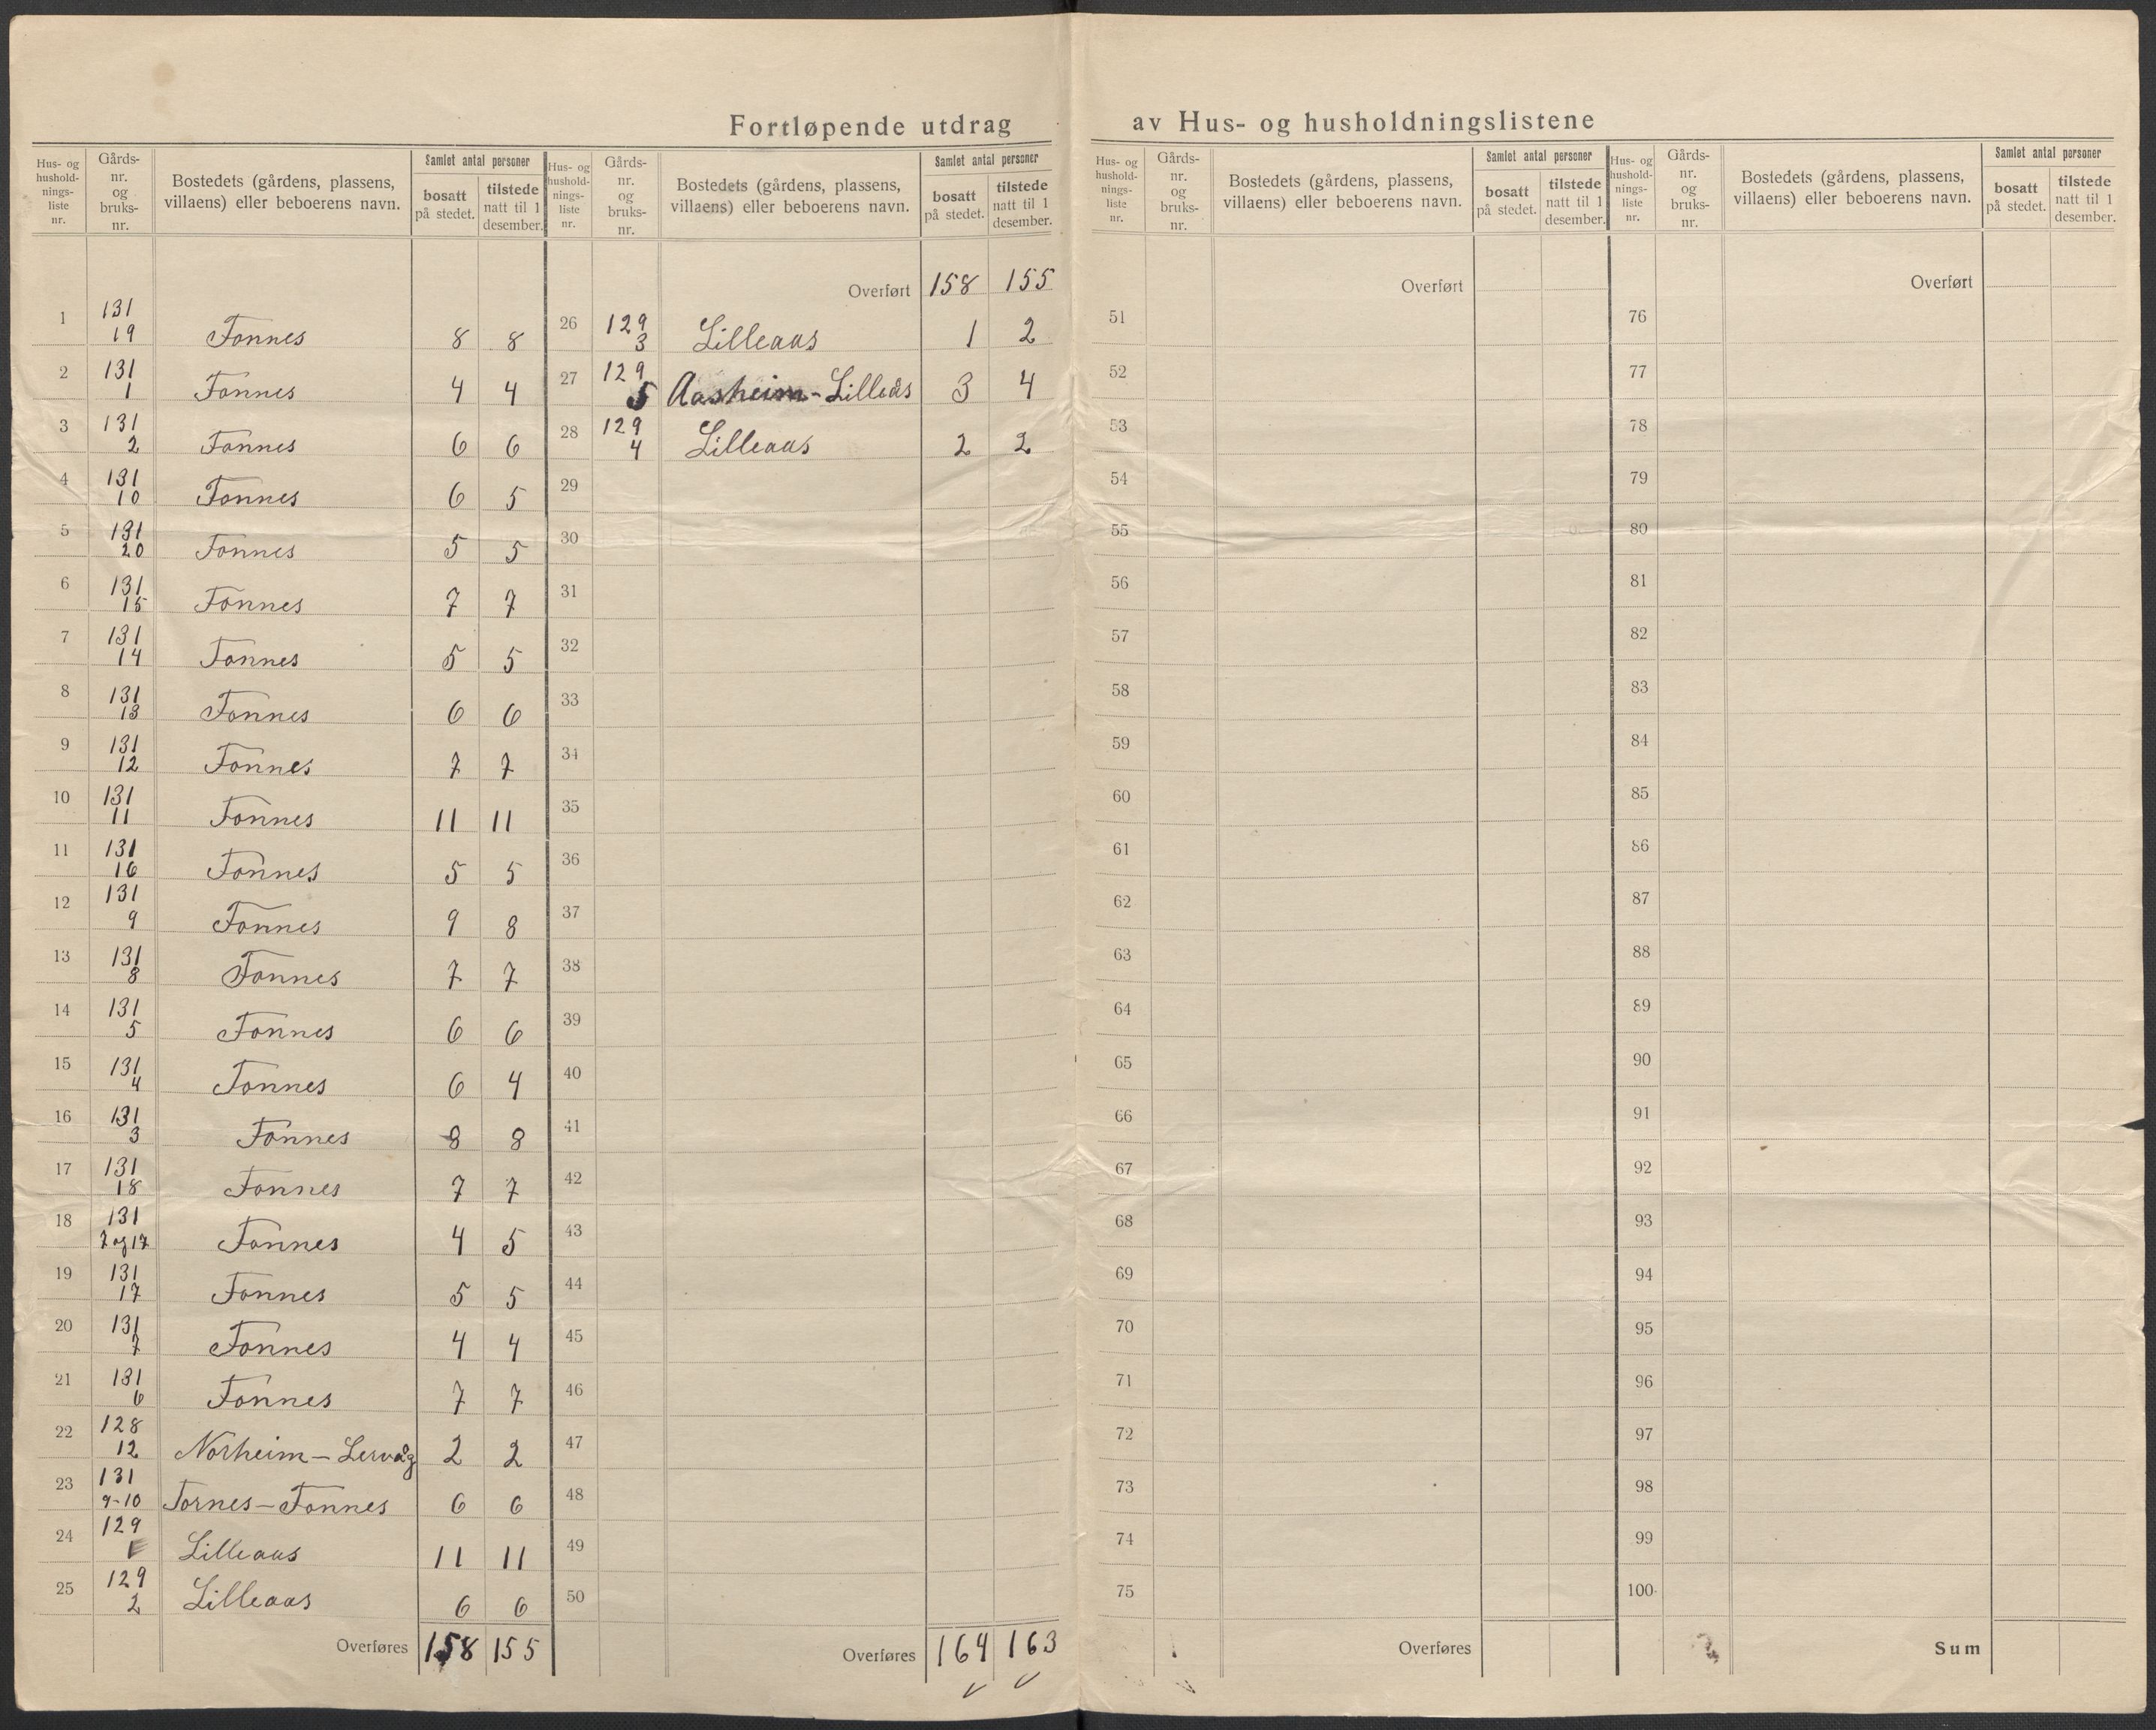 Fortløpende utdrag av Hus- og husholdningslistene
Hus- og hushold-nings-liste nr. | Gårds-nr. og bruks-nr. | Bostedets (gårdens, plassens, villaens) eller beboerens navn. | Samlet antal personer | bosatt på stedet. | tilstede natt til 1 desember.
1 131 19 Fonnes 8 8
2 131 1 Fonnes 4 4
3 131 2 Fonnes 6 6
4 131 10 Fonnes 6 5
5 131 20 Fonnes 5 5
6 131 15 Fonnes 7 7
7 131 14 Fonnes 5 5
8 131 13 Fonnes 6 6
9 131 12 Fonnes 7 7
10 131 11 Fonnes 11 11
11 131 16 Fonnes 5 5
12 131 9 Fonnes 9 8
13 131 8 Fonnes 7 7
14 131 5 Fonnes 6 6
15 131 4 Fonnes 6 4
16 131 3 Fonnes 8 8
17 131 18 Fonnes 7 7
18 131 7 og 17 Fonnes 4 5
19 131 17 Fonnes 5 5
20 131 7 Fonnes 4 4
21 131 6 Fonnes 7 7
22 128 12 Norheim - Lervåg 2 2
23 131 9-10 Tornes - Fonnes 6 6
24 129 Lilleaas 11 11
25 129 2 Lilleaas 6 6
Overføres 158 155
Hus- og hushold-nings-liste nr. | Gårds-nr. og bruks-nr. | Bostedets (gårdens, plassens, villaens) eller beboerens navn. | Samlet antal personer | bosatt på stedet. | tilstede natt til 1 desember.
Overført 158 155
26 129 3 Lilleaas 1 2
27 129 5 Aasheim - Lilleås 3 4
28 129 4 Lilleaas 2 2
29
30
31
32
33
34
35
36
37
38
39
40
41
42
43
44
45
46
47
48
49
50
Overføres 164 163
Hus- og hushold-nings-liste nr. | Gårds-nr. og bruks-nr. | Bostedets (gårdens, plassens, villaens) eller beboerens navn. | Samlet antal personer | bosatt på stedet. | tilstede natt til 1 desember.
Overført
51
52
53
54
55
56
57
58
59
60
61
62
63
64
65
66
67
68
69
70
71
72
73
74
75
Overføres
Hus- og hushold-nings-liste nr. | Gårds-nr. og bruks-nr. | Bostedets (gårdens, plassens, villaens) eller beboerens navn. | Samlet antal personer | bosatt på stedet. | tilstede natt til 1 desember.
Overført
76
77
78
79
80
81
82
83
84
85
86
87
88
89
90
91
92
93
94
95
96
97
98
99
100
Sum